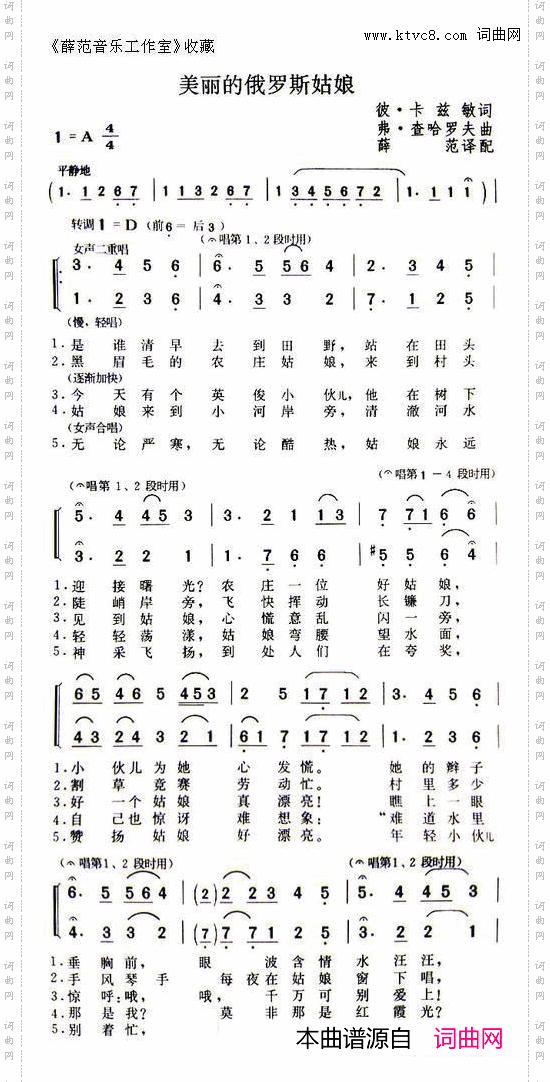 《薛范音乐工作室》收藏
www.ktvc8.com 词曲网
美丽的俄罗斯姑娘
彼·卡兹敏词
1=A 4/4
弗·查哈罗夫曲
薛范译配
平静地
(1. 1 2 6 7 | 1 1 1 2 6 7 | 1 3 4 5 6 7 2 | 1. 1 1 1)
转调1=D (前6=后3)
(唱第1、2段时用)
女声二重唱
3. 4 5 6 | 6. 5 5 6 4 | 2. 3 4 5
1. 2 3 6 | 4. 3 3 2 | 7. 1 2 5
(慢,轻唱)
1.是谁清早去到田野,站在田头
2.黑眉毛的农庄姑娘,来到村头
(逐渐加快)
3.今天有个英俊小伙儿,他在树下
4.姑娘来到小河岸旁,清澈河水
(女声合唱)
5.无论严寒,无论酷热,姑娘永远
(唱第1-4段时用)
(唱第1、2段时用)
5. 4 4 5 3 | 3. 2 1 1 3 | 7 7 1 6 6
3. 2 2 1 | 1. 7 6 6 | #5 5 6 4
1.迎接曙光?农庄一位好姑娘,
2.陡峭岸旁,飞快挥动长镰刀,
3.见到姑娘,心慌意乱闪一旁,
4.轻轻荡漾,姑娘弯腰望水面,
5.神采飞扬,到处人们在夸奖,
6 5 4 6 5 4 5 3 | 2 5 1 7 1 2 | 3. 4 5 6
4 3 2 3 2 4 2 1 | 7 5 1 7 1 2 | 1. 2 3 6
1.小伙儿为她心发慌。她的辫子
2.割草竞赛劳动忙。村里多少
3.好一个姑娘真漂亮!瞧上一眼
4.自己也惊讶难想象:“难道水里
5.赞扬姑娘好漂亮。年轻小伙儿
(唱第1、2段时用)
(唱第1、2段时用)
6. 5 5 6 4 | (2) 2 2 3 4 5 | 5. 4 4 5 3
4. 3 3 2 | (7) 7 7 1 2 5 | 3. 2 2 1
1.垂胸前,眼波含情水汪汪,
2.手风琴手每夜在姑娘窗下唱,
3.惊呼:哦,哦,千万可别爱上!
4.那是我?莫非那是红霞光?
5.别着忙,
本曲谱源自 词曲网